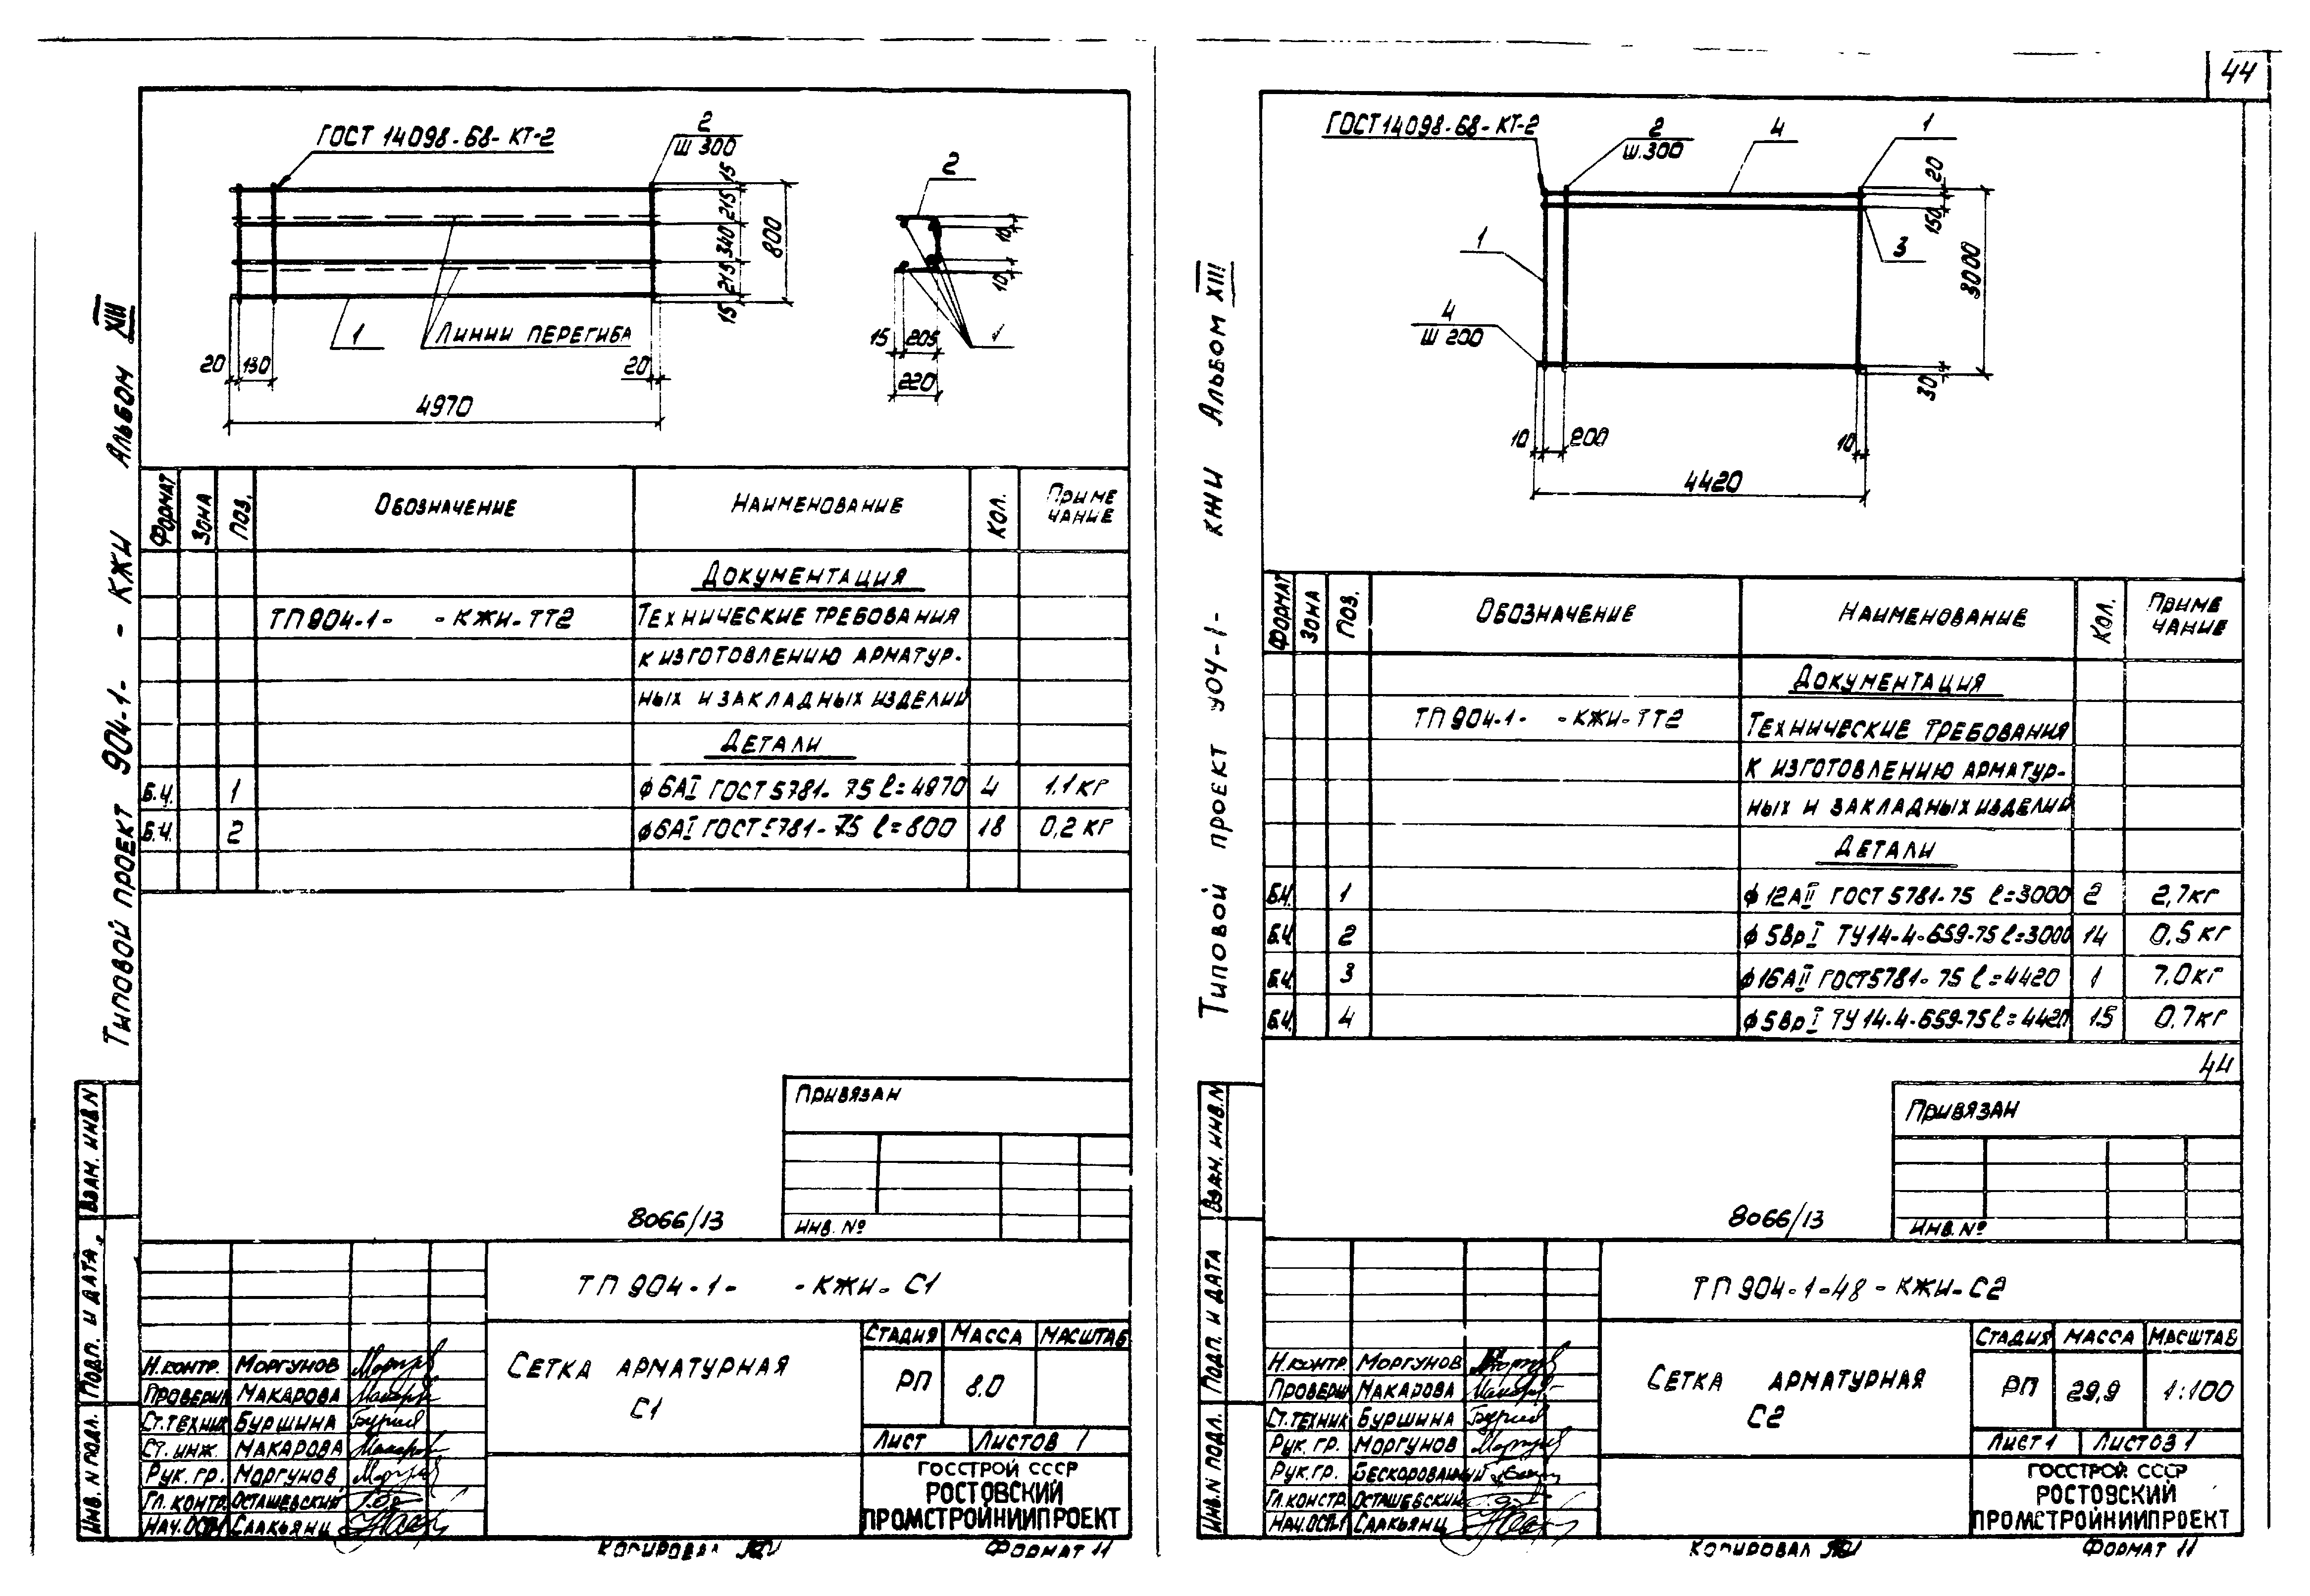 44
Типовой проект 904-1- - КЖИ Альбом XIII
ГОСТ 14098-68-КТ-2
2
Ш 300
15
215
340
215
15
800
Линии перегиба
1
20
130
20
4970
2
10
10
15
205
220
1
Формат Зона Поз. Обозначение Наименование Кол. Приме
чание
Документация
ТП904-1- -КЖИ-ТТ2 Технические требования
к изготовлению арматур-
ных и закладных изделий
Детали
Б.Ч. 1 ф6АI ГОСТ 5781-75 ℓ=4970 4 1.1 кг
Б.Ч. 2 ф6АI ГОСТ 5781-75 ℓ=800 18 0,2 кг
Привязан
8066/13
Инв. №
Взам. инв. N
Подп. и дата
Инв. N подл.
ТП904-1- -КЖИ-С1
Сетка арматурная
С1
Стадия Масса Масштаб
РП 8.0
Лист Листов 1
Госстрой СССР
Ростовский
Промстройниипроект
Н.контр. Моргунов
Проверил Макарова
Ст.техник Буршина
Ст. инж. Макарова
Рук. гр. Моргунов
Гл. контр. Осташевский
Нач. Саакьянц
Копировал
Формат 11
Типовой проект 904-1- КЖИ Альбом XIII
ГОСТ 14098-68-КТ-2
2
Ш.300
4
1
20
150
3000
30
1
3
4
Ш 200
10
200
10
4420
Формат Зона Поз. Обозначение Наименование Кол. Приме
чание
Документация
ТП904-1- -КЖИ-ТТ2 Технические требования
к изготовлению арматур-
ных и закладных изделий
Детали
Б.Ч. 1 ф12АII ГОСТ 5781-75 ℓ=3000 2 2,7 кг
Б.Ч. 2 ф5ВрI ТУ14-4-659-75 ℓ=3000 14 0,5 кг
Б.Ч. 3 ф16АII ГОСТ5781-75 ℓ=4420 1 7.0 кг
Б.Ч. 4 ф5ВрI ТУ 14-4-659-75 ℓ=4420 15 0.7 кг
44
Привязан
8066/13
Инв. №
Взам. инв. N
Подп. и дата
Инв. N подл.
ТП904-1-48-КЖИ-С2
Сетка арматурная
С2
Стадия Масса Масштаб
РП 29,9 1:100
Лист 1 Листов 1
Госстрой СССР
Ростовский
Промстройниипроект
Н.контр. Моргунов
Проверил Макарова
Ст.техник Буршина
Рук. гр. Моргунов
Рук. гр. Бескорованный
Гл.констр. Осташевский
Нач. Саакьянц
Копировал
Формат 11